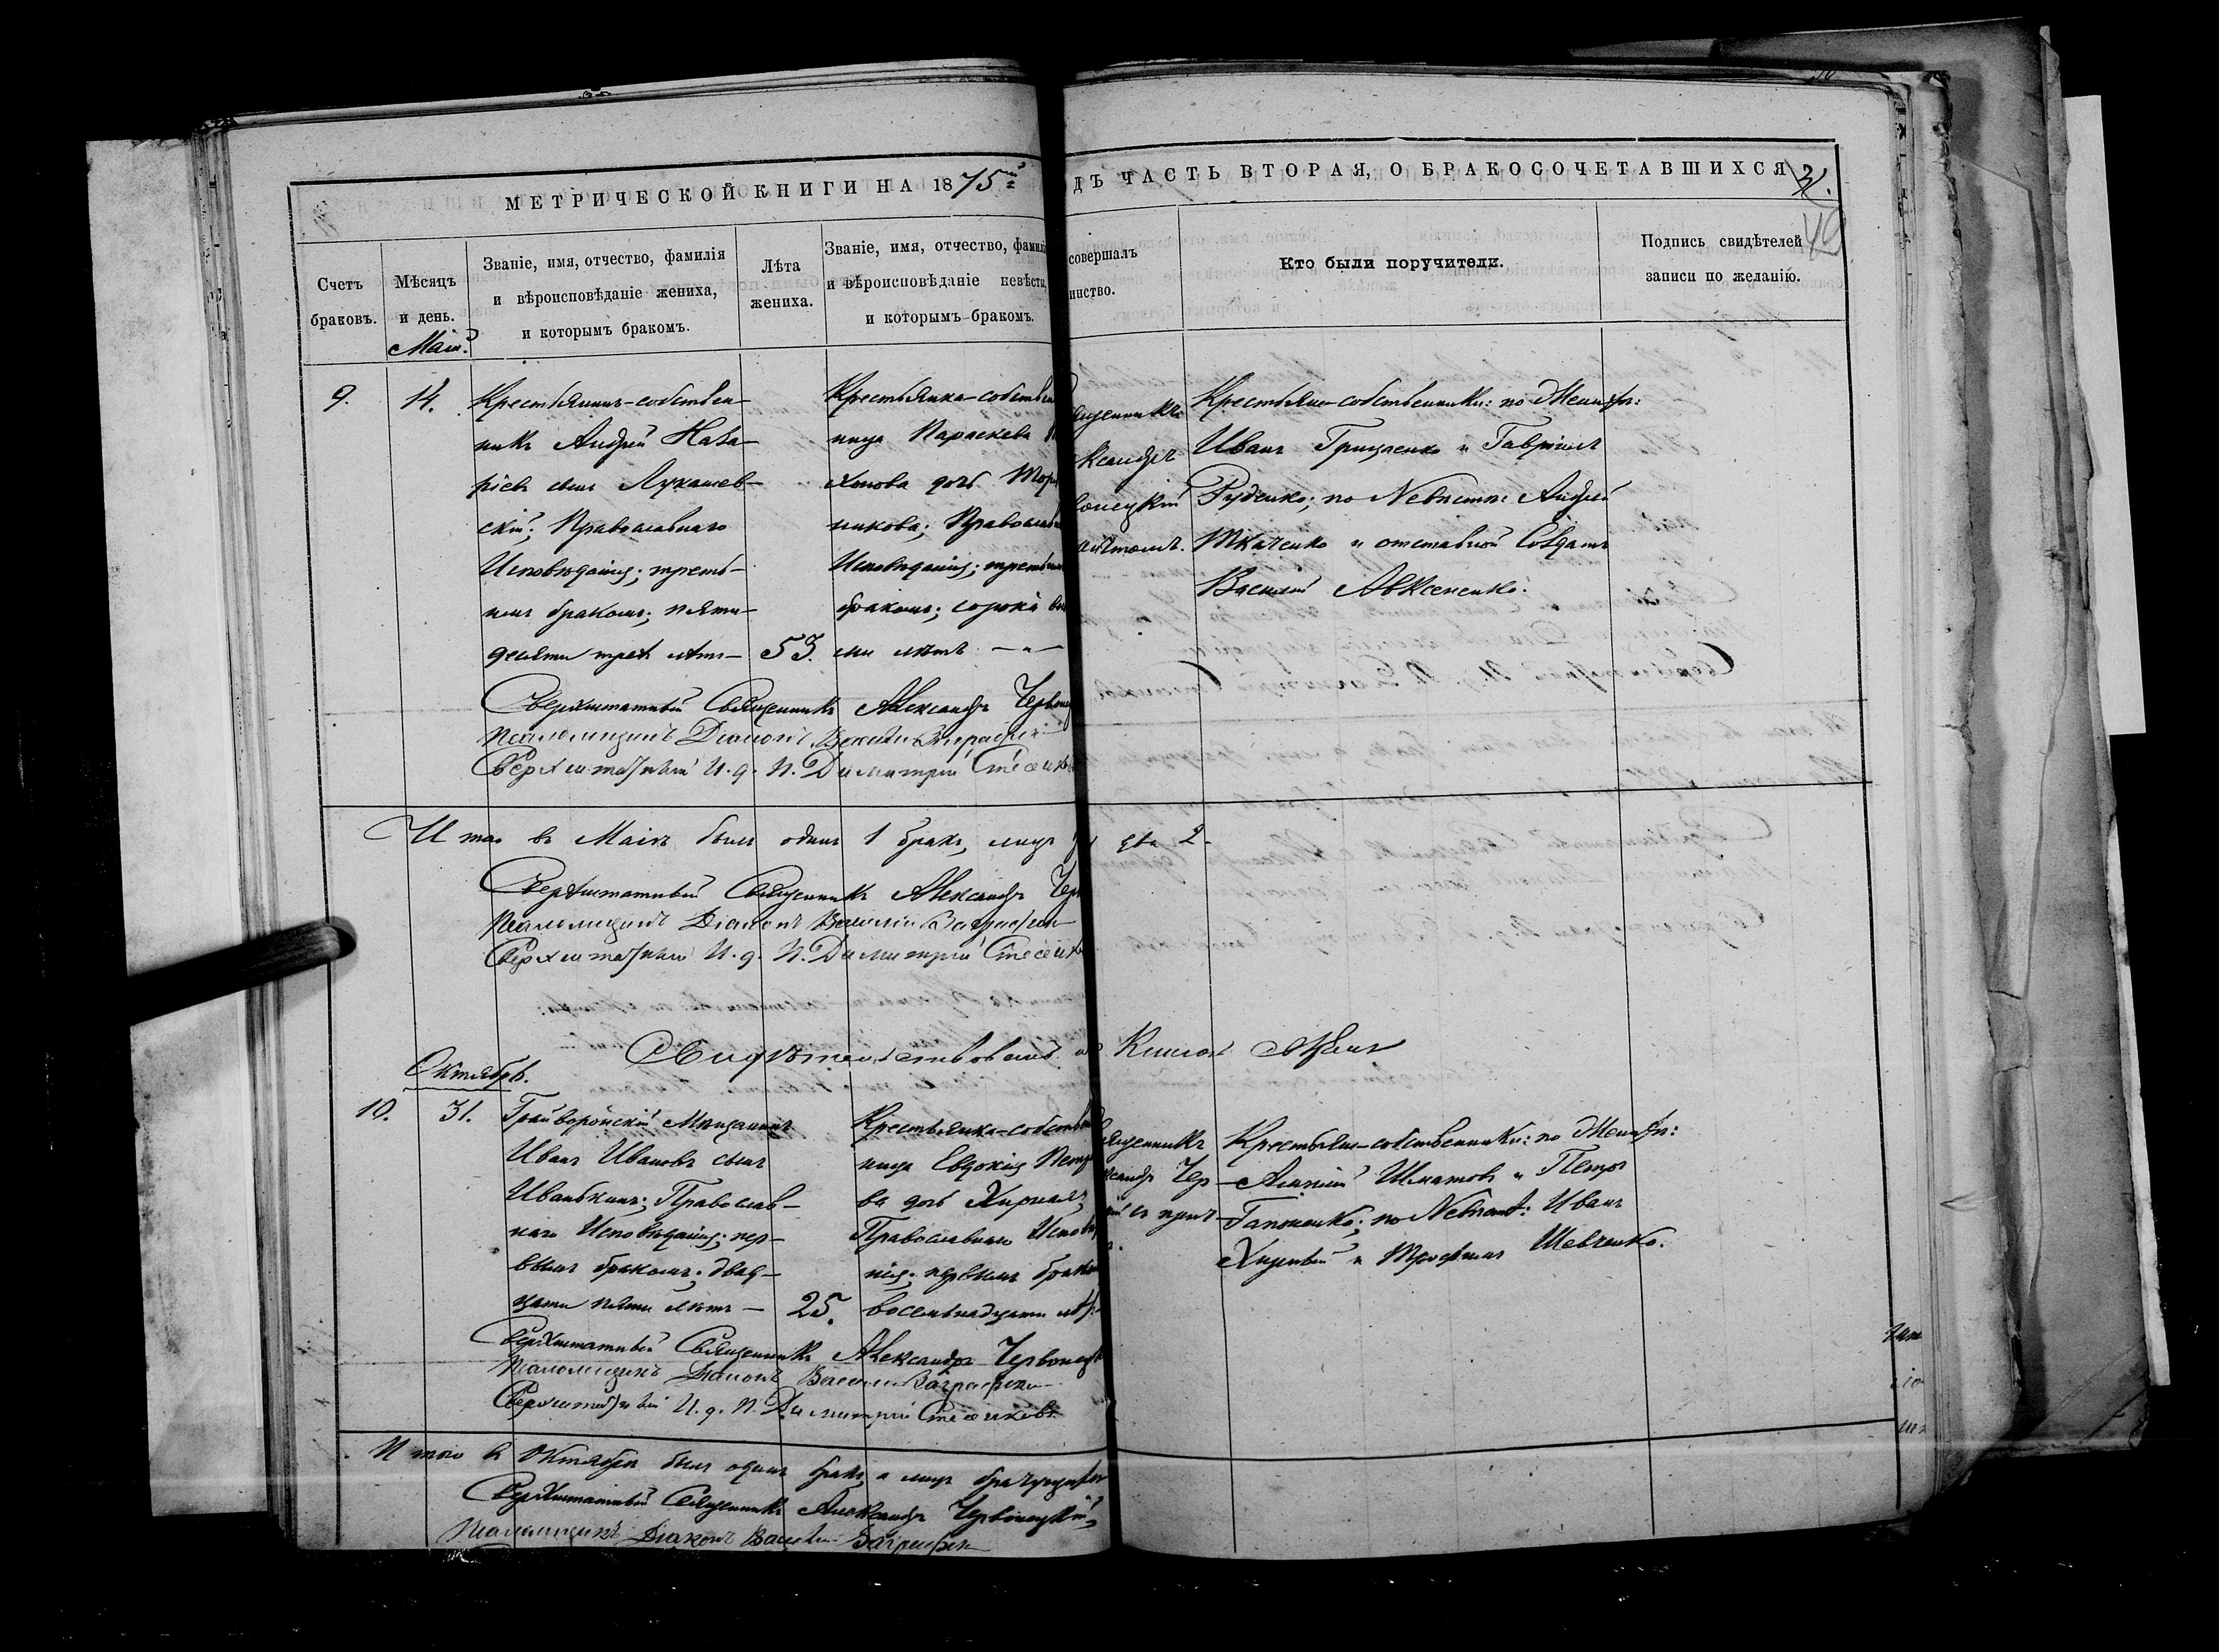 МЕТРИЧЕСКОЙ КНИГИ НА 1875й
ДЪ ЧАСТЬ ВТОРАЯ, О БРАКОСОЧЕТАВШИХСЯ
Счетъ
браковъ.
Мѣсяцъ
и день.
Званіе, имя, отчество, фамилія
и вѣроисповѣданіе жениха,
и которымъ бракомъ.
Лѣта
жениха.
Званіе, имя, отчество, фамилі
и вѣроисповѣданіе невѣсты,
и которымъ бракомъ.
совершалъ
инство.
Кто были поручители.
Подпись свидѣтелей
записи по желанію.
Маій.
9.
14.
Крестьянинъ-собствен-
никъ Андрей Наза-
ріевъ сынъ Лукашев-
скій; Православнаго
Исповѣданія; треть-
имъ бракомъ; пяти-
десяти трехъ лѣтъ-
53.
Крестьянка-собствен
ница Параскева
хонова дочь
никова; Православн
Исповѣданія; третьим
бракомъ; сорока во
ми лѣтъ -"-
ященникъ
ксандръ
вонецкій
ичтомъ.
Крестьяне-собственники: по Женихѣ:
Иванъ Грищенко и Гавріилъ
Руденко; по Невѣстѣ: Андрей
Ткаченко и отставной Солдатъ
Василій Авксененко.
Сверхштатный Священникъ Александръ Червонец
Псаломщикъ Діаконъ Василій
Сверхштатный И. д. П. Димитрій
Итого въ Маіѣ былъ одинъ 1 бракъ, лицъ
2-
Сверхштатный Священникъ Александръ Чер
Псаломщикъ Діаконъ Василій
Сверхштатный И. д. П. Димитрій
Свидѣтельствовалъ
Октябрь.
10.
31.
Грайворонскій Мѣщанинъ
Иванъ Ивановъ сынъ
Иванькинъ; Православ-
наго Исповѣданія; пер-
вымъ бракомъ; двад-
цати пяти лѣтъ -
25.
Крестьянка-собствен
ница Евдокія Петр
ва дочь
Православнаго Исповѣ
нія; первымъ браком
восемнадцати лѣт.
ященникъ
ксандръ Чер-
ій съ прич-
Крестьяне-собственники: по Женихѣ:
Шматовъ и Петръ
Гапоненко; по Невѣстѣ: Иванъ
и Трофимъ Шевченко.
Сверхштатный Священникъ Александръ Червонецк
Псаломщикъ Діаконъ Василій
Сверхштатный И. д. П. Димитрій
Итого въ Октябрѣ былъ одинъ бракъ, а лицъ
Сверхштатный Священникъ Александръ Червонецкій
Псаломщикъ Діаконъ Василій